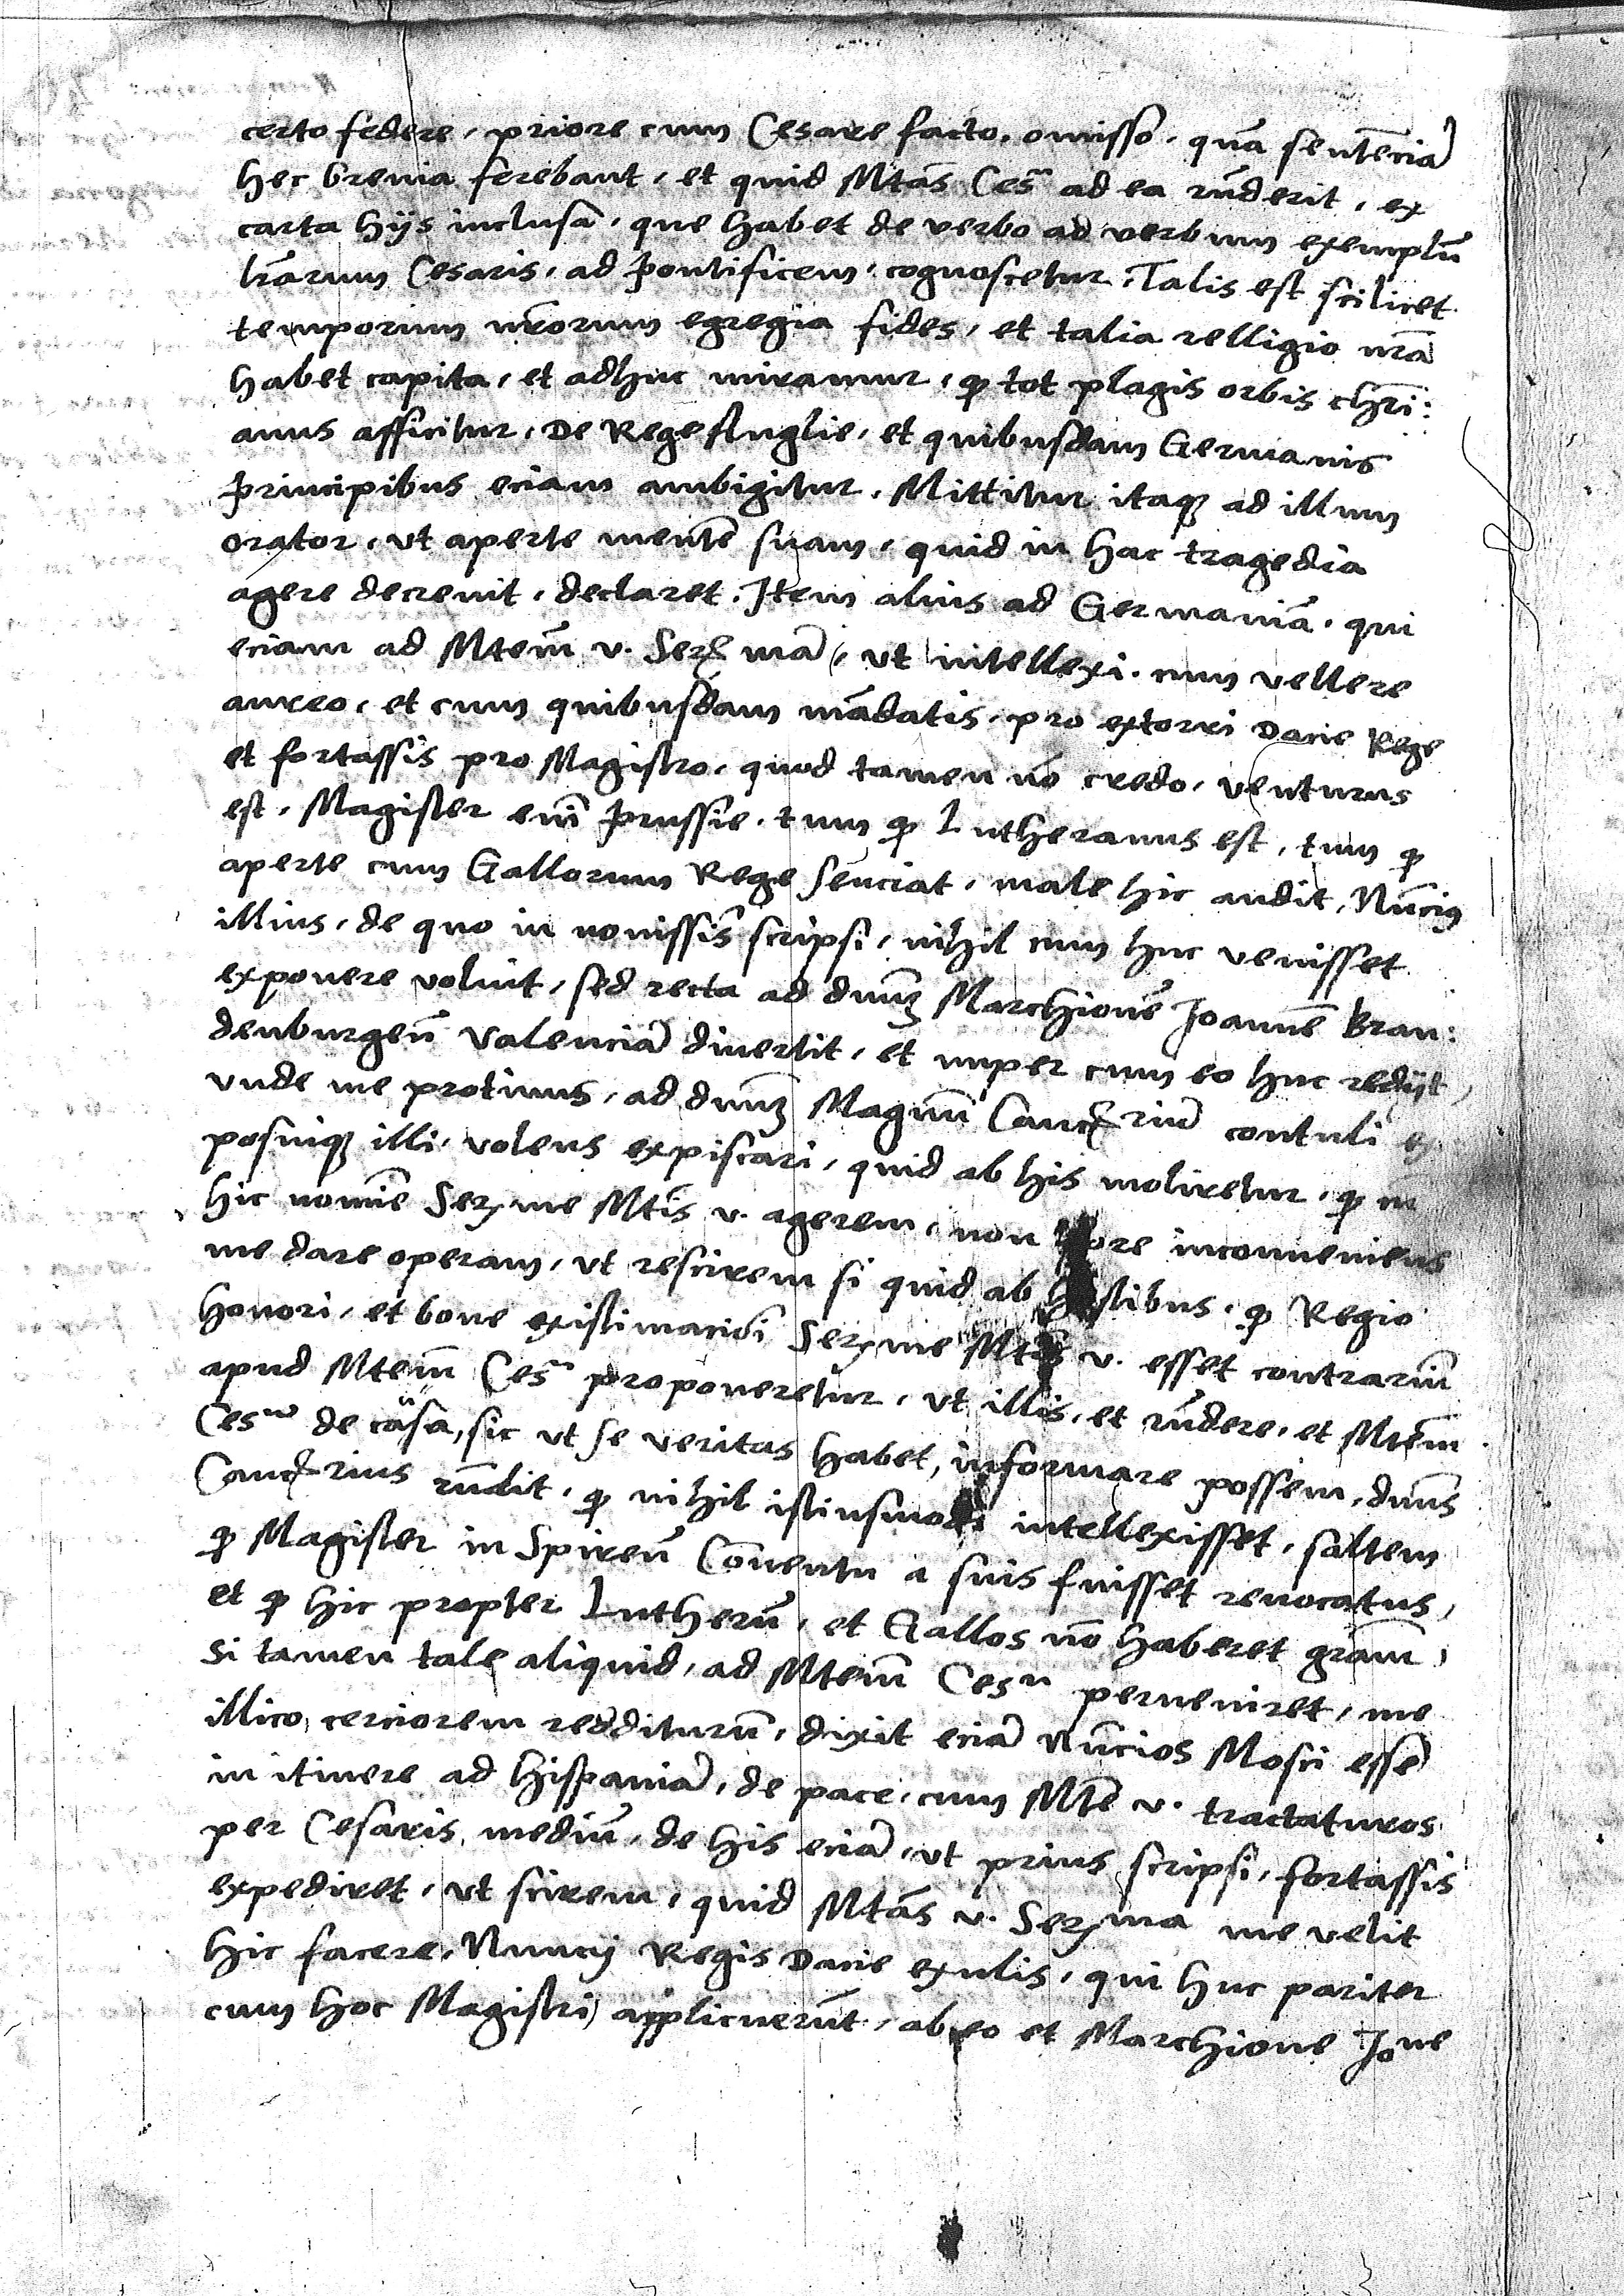 certo federe, priore cum Cesare facto, omisso, quā sentēciā
hec brevia ferebant, et quid Mtās Ces^a ad ea rn̄derit, ex
carta hijs inclusa, que habet de verbo ad verbum exemplū
lr̄arum Cesaris, ad Pontificem, cognoscetur. Talis est scilicet
temporum nr̄orum egregia fides, et talia relligio nr̄a
habet capita, et adhuc miramur, q tot plagis orbis chri:
anus afficitur, De Rege Anglie, et quibusdam Germanis
principibus eciam ambigitur, Mittitur itaq ad illum
orator, ut aperte mentē suam, quid in hac tragedia
agere decrevit, declaret. Item alius ad Germaniā, qui
eciam ad Mtem̄ v. Serx mā, ut intellexi, cum vellere
aureo, et cum quibusdam mādatis, pro extorri Dacie Rege
et fortassis pro Magistro, quod tamen nō credo, venturus
est, Magister em̄ Prussie, tum q Lutheranus est, tum q
aperte cum Gallorum Rege senciat, male hic audit, Nūcius
illius, de quo in novissis̄ scripsi, nihil cum huc venisset
exponere voluit, sed recta ad dnm̄ Marchionē Joannē Bran:
denburgen̄ Valenciā divertit, et nuper cum eo huc redijt,
unde me protinus, ad dnm̄ Magnū Canc rium contuli ex
posuiq illi, volens expiscari, quid ab his moliretur, q cū
hic nomīe Serx me Mtis̄ v. agerem, non fore inconveniens
me dare operam, ut rescirem si quid ab hostibus, q Regio
honori, et bone existimacioni Serx me Mtis v. esset contrariū
apud Mtem̄ Ces^a proponeretur, ut illis, et rn̄dere, et Mtem̄
Ces^m de causa, sic ut se veritas habet, informare possem, dnus̄
Canc rius rn̄dit, q nihil istiusmodi intellexisset, saltem
q Magister in Spiren̄ Cōventu a suis fuisset revocatus,
et q hic propter Lutherū, et Gallos nō haberet gram̄,
si tamen tale aliquid, ad Mtem̄ Ces^m perveniret, me
illico cerciorem redditurū, dixit eciā Nūcios Mosci esse
in itinere ad Hispaniā, de pace, cum Mte v. tractaturos
per Cesaris mediū, de his eciā, ut prius scripsi, fortassis
expediret, ut scirem, quid Mtās v. Serx ma me velit
hic facere, Nuncij Regis Dacie exulis, qui huc pariter
cum hoc Magistri applicuerūt, ab eo et Marchione Jo^ne